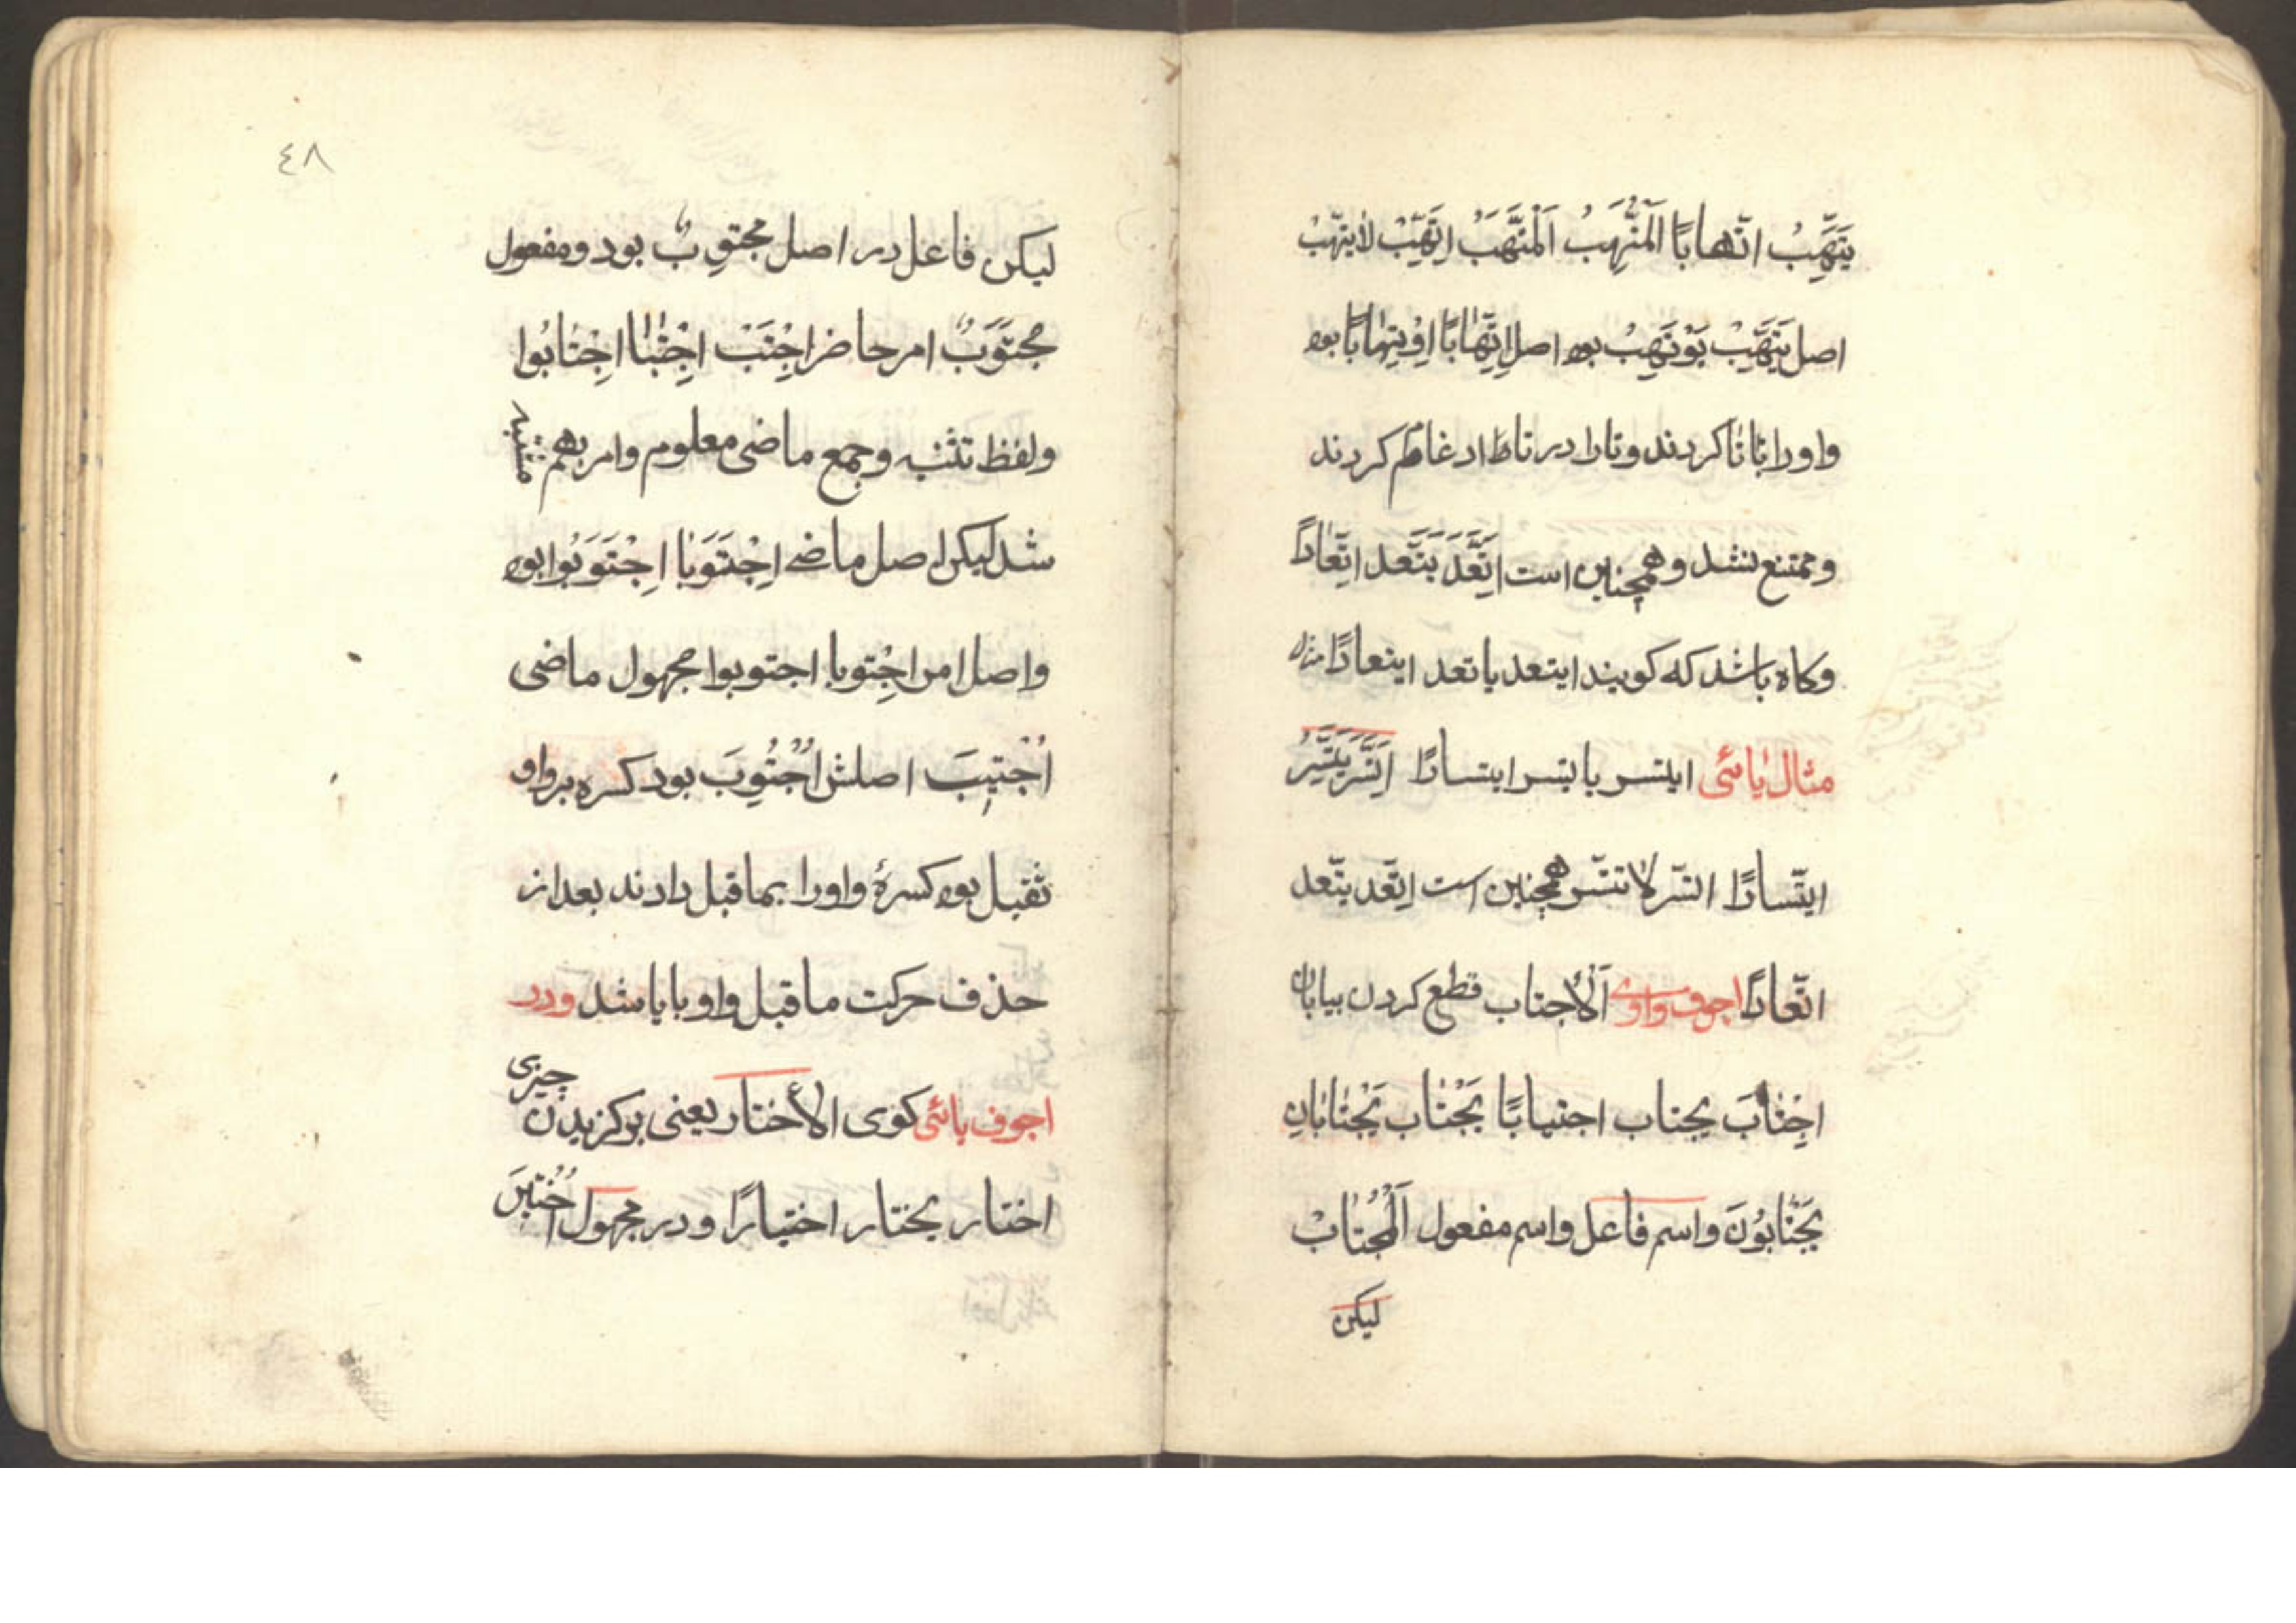 یَتَّهِبُ اتّهابًا اَلْمُتَّهِبُ اَلْمُتَّهَبُ اِتَّهِبْ لا یتّهبْ
اصل یَتَّهِبْ یَوْتَهِبُ بود اصل اِتِّهابًا اِوْتِهابًا بود
واو را تا کردند وتا را در تا ادغام کردند
وممتنع نشد وهمچنین است اِتَّعَدَ یَتَّعد اتِّعادًا
وکاه باشد که کویند ایتعد یاتعد ایتعادًا
مثال یائی ایتسر یاتسر ایتسارًا اِتَّسَرَ یَتَّسِرُ
ایتّسارًا اتّسر لا تتّسر همچنین است اِتّعد یتّعد
اتّعادًا اجوف واوی اَلْأجتاب قطع کردن بیابان
اِجْتابَ یجتاب اجتیابًا یَجْتاب یَجْتابانِ
یَجْتابُونَ واسم فاعل واسم مفعول اَلْمُجْتابْ
لیکن
٤٨
لیکن فاعل در اصل مجتوِبٌ بود ومفعول
مجتَوَبٌ امر حاضر اِجْتَبْ اِجْتابا اِجْتابُوا
ولفظ تثنیه وجمع ماضی معلوم وامر بهم مشتبه
شد لیکن اصل ماضی اِجْتَوَبا اِجْتَوَبُوا بود
واصل امر اِجْتوبا اجتوبوا مجهول ماضی
اُجْتِیبَ اصلش اُجْتُوِبَ بود کسره بر واو
ثقیل بود کسرهٔ واو را بما قبل دادند بعد از
حذف حرکت ما قبل واو با یا شد ودر
اجوف یائی کوی الأختار یعنی برکزیدن چیزی
اختار یختار اختیارًا ودر مجهول اُخْتِیرَ